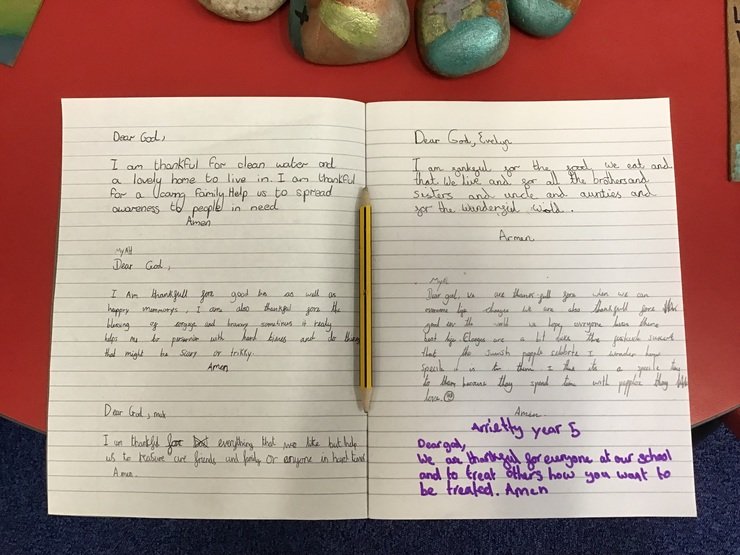 Dear God,
I am thankful for clean water and
a lovely home to live in. I am thankful
for a family. Help us to spread
awareness to people in need
Amen
MyAH
Dear God,
I Am thankfull fore good as well as
happy mammorys, I am also thankful fore the
blessing of and bravery somtimes it really
helps me to with hard times and do things
that might be scary or trikky.
Amen
Dear God, max
I am thankful for everything that we like but help
us to treasure are friends and family or enyone in hard times
Amen
Dear God, Evelyn
I am for the food we eat and
that we live and for all the brothers and
sisters and uncle and aunties and
for the world.
Armen
Dear god, we are when we can
life we are also thankfull fore
god in the world we hope everyone have there
best life are a bit
that the people celebrite I wonder how
it is to them I its a time
to them because they spend time with they
love.
Amen.
Arrietty year 5
Dear god,
We are thankful for everyone at our school
and to treat others how you want to
be treated. Amen